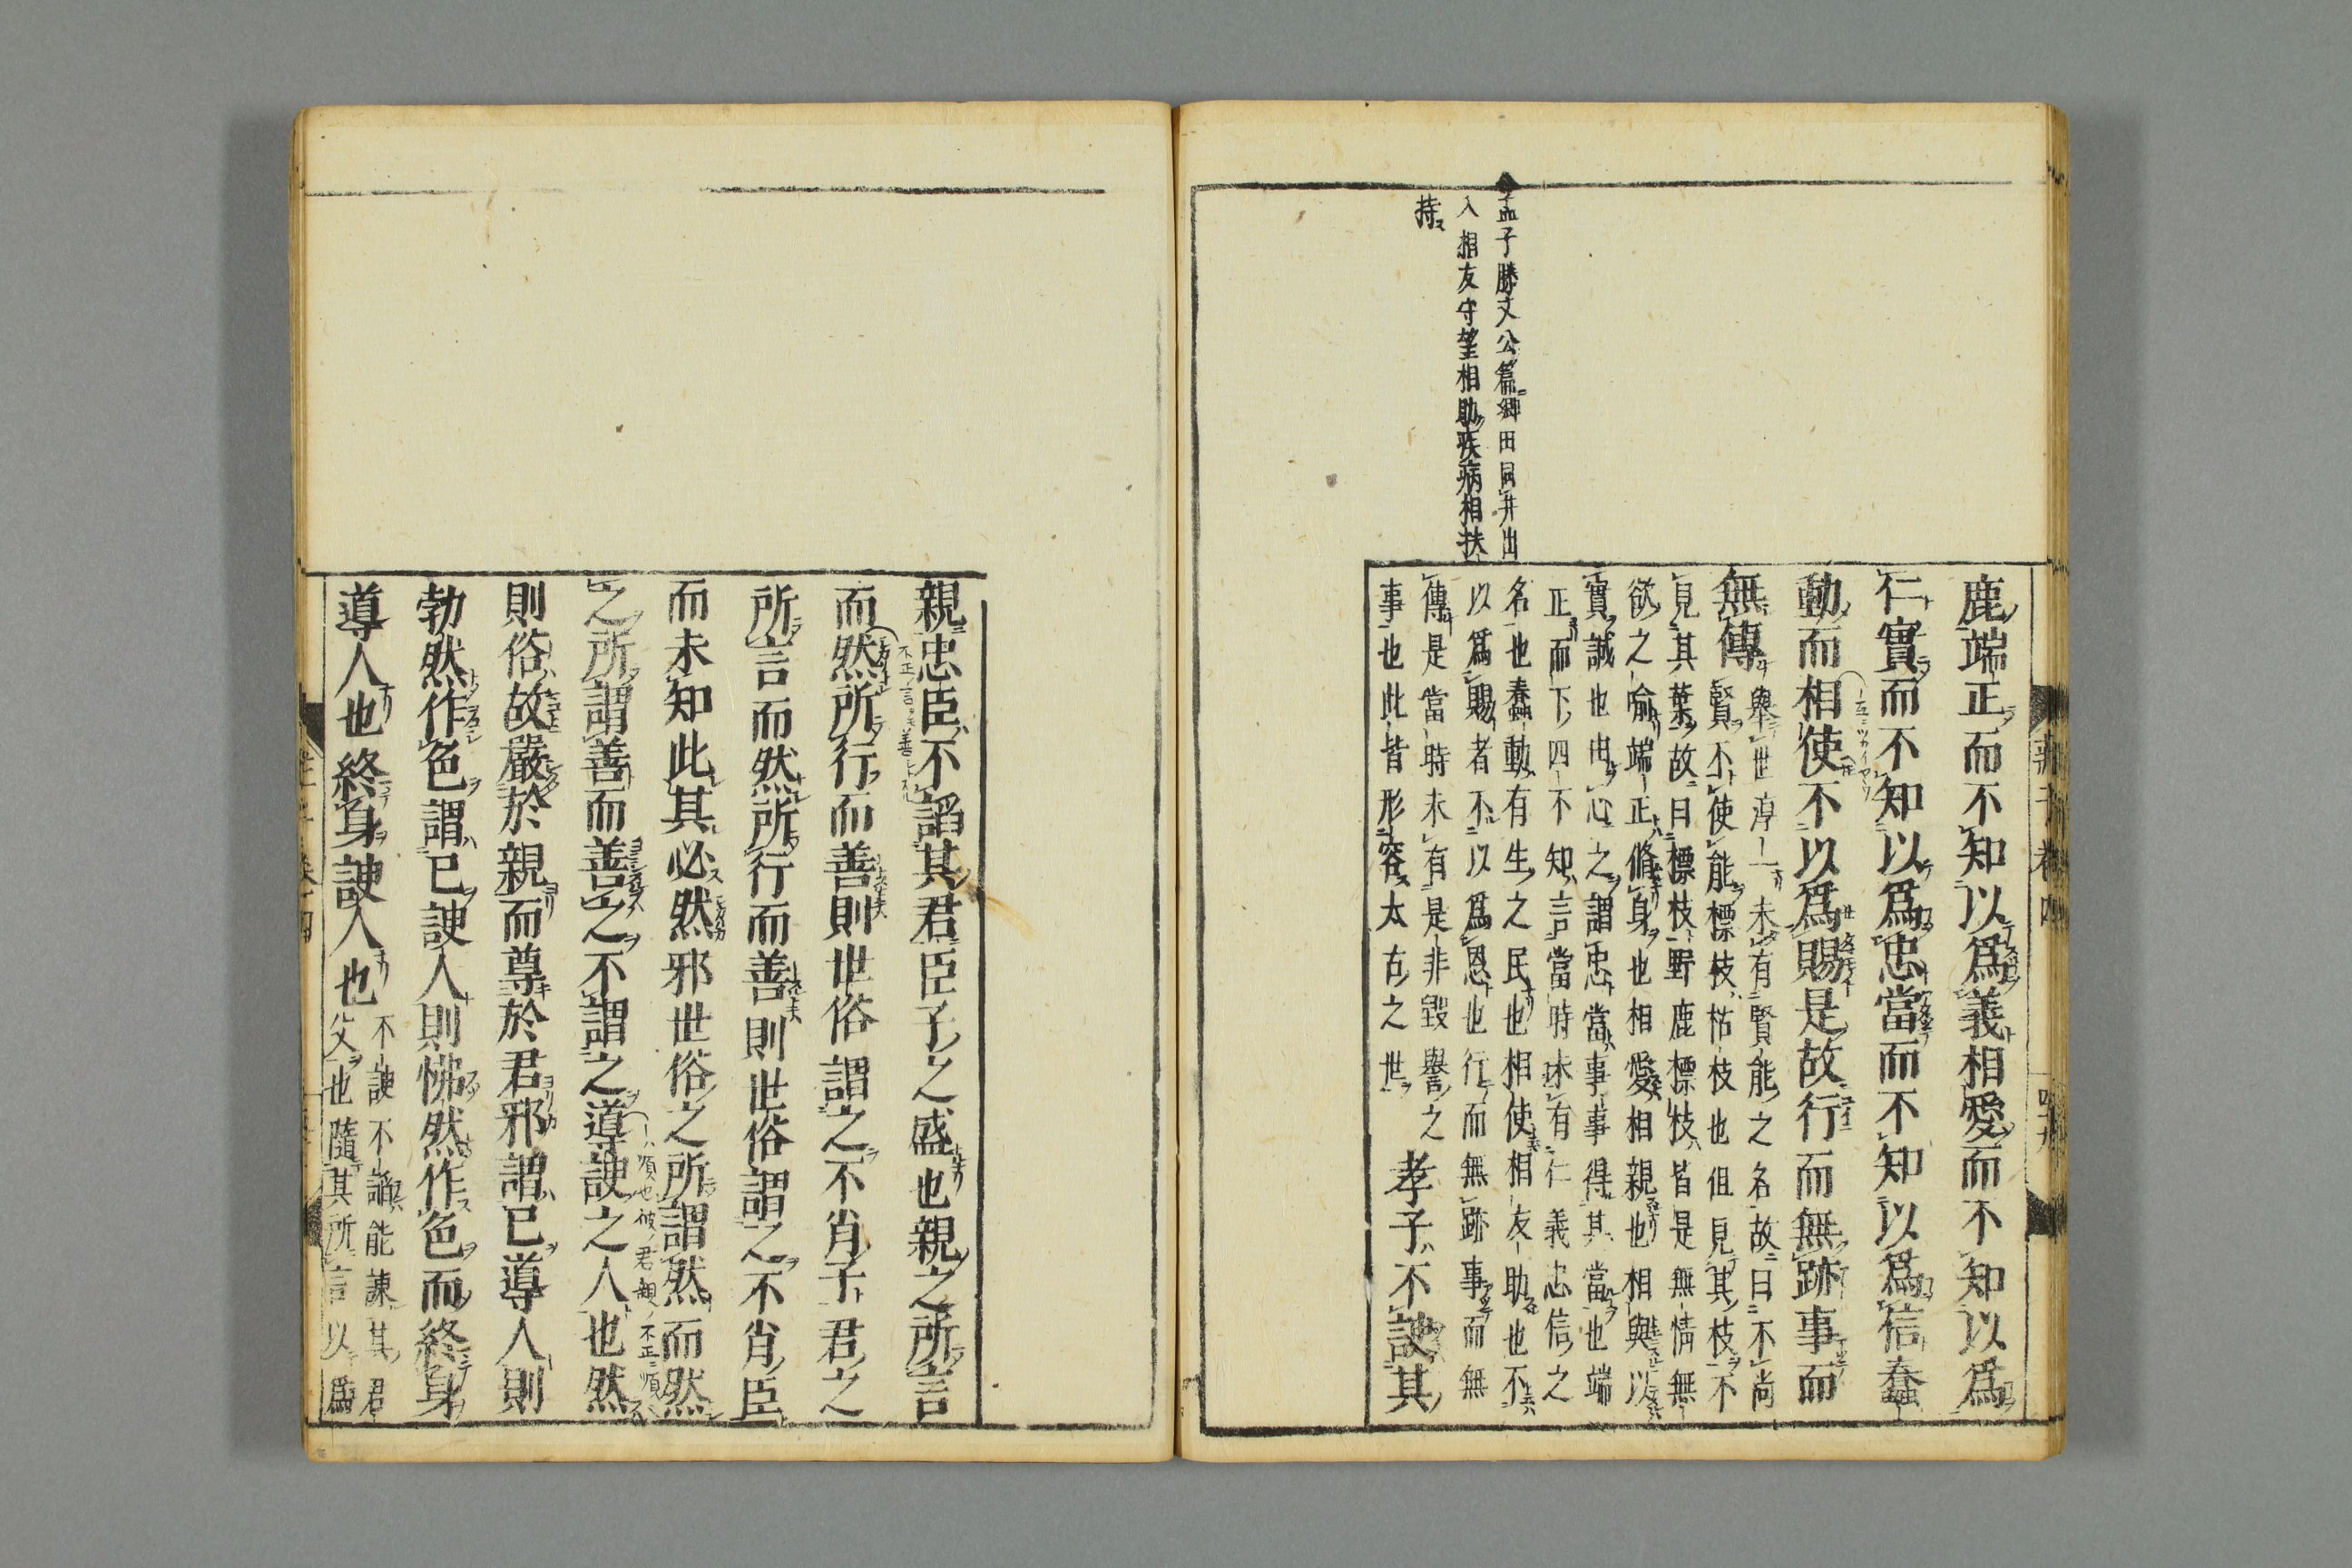 孟子滕文公篇鄉田同井出
入相友守望相助疾病相扶
持
鹿端正而不知以爲義相愛而不知以爲
仁實而不知以爲忠當而不知以爲信蠢
動而相使不以爲賜是故行而無跡事而
無傳
舉世淳一未有賢能之名故曰不尚
賢不使能標枝枯枝也但見其枝不
見其葉故曰標枝野鹿標枝皆是無情無
欲之喻端正脩身也相愛相親也相與以
實誠也由心之謂忠當事事得其當也端
正而下四不知言當時未有仁義忠信之
名也蠢動有生之民也相使相友助也不
以爲賜者不以爲恩也行而無跡事而無
傳是當時未有是非毀譽之
事也此皆形容太古之世
孝子不諛其
親忠臣不諂其君臣子之盛也親之所言
而然所行而善則世俗謂之不肖子君之
所言而然所行而善則世俗謂之不肖臣
而未知此其必然邪世俗之所謂然而然
之所謂善而善之不謂之道諛之人也然
則俗故嚴於親而尊於君邪謂已導人則
勃然作色謂已諛人則怫然作色而終身
導人也終身諛人也
不諛不諂能諫其君
父也隨其所言以爲